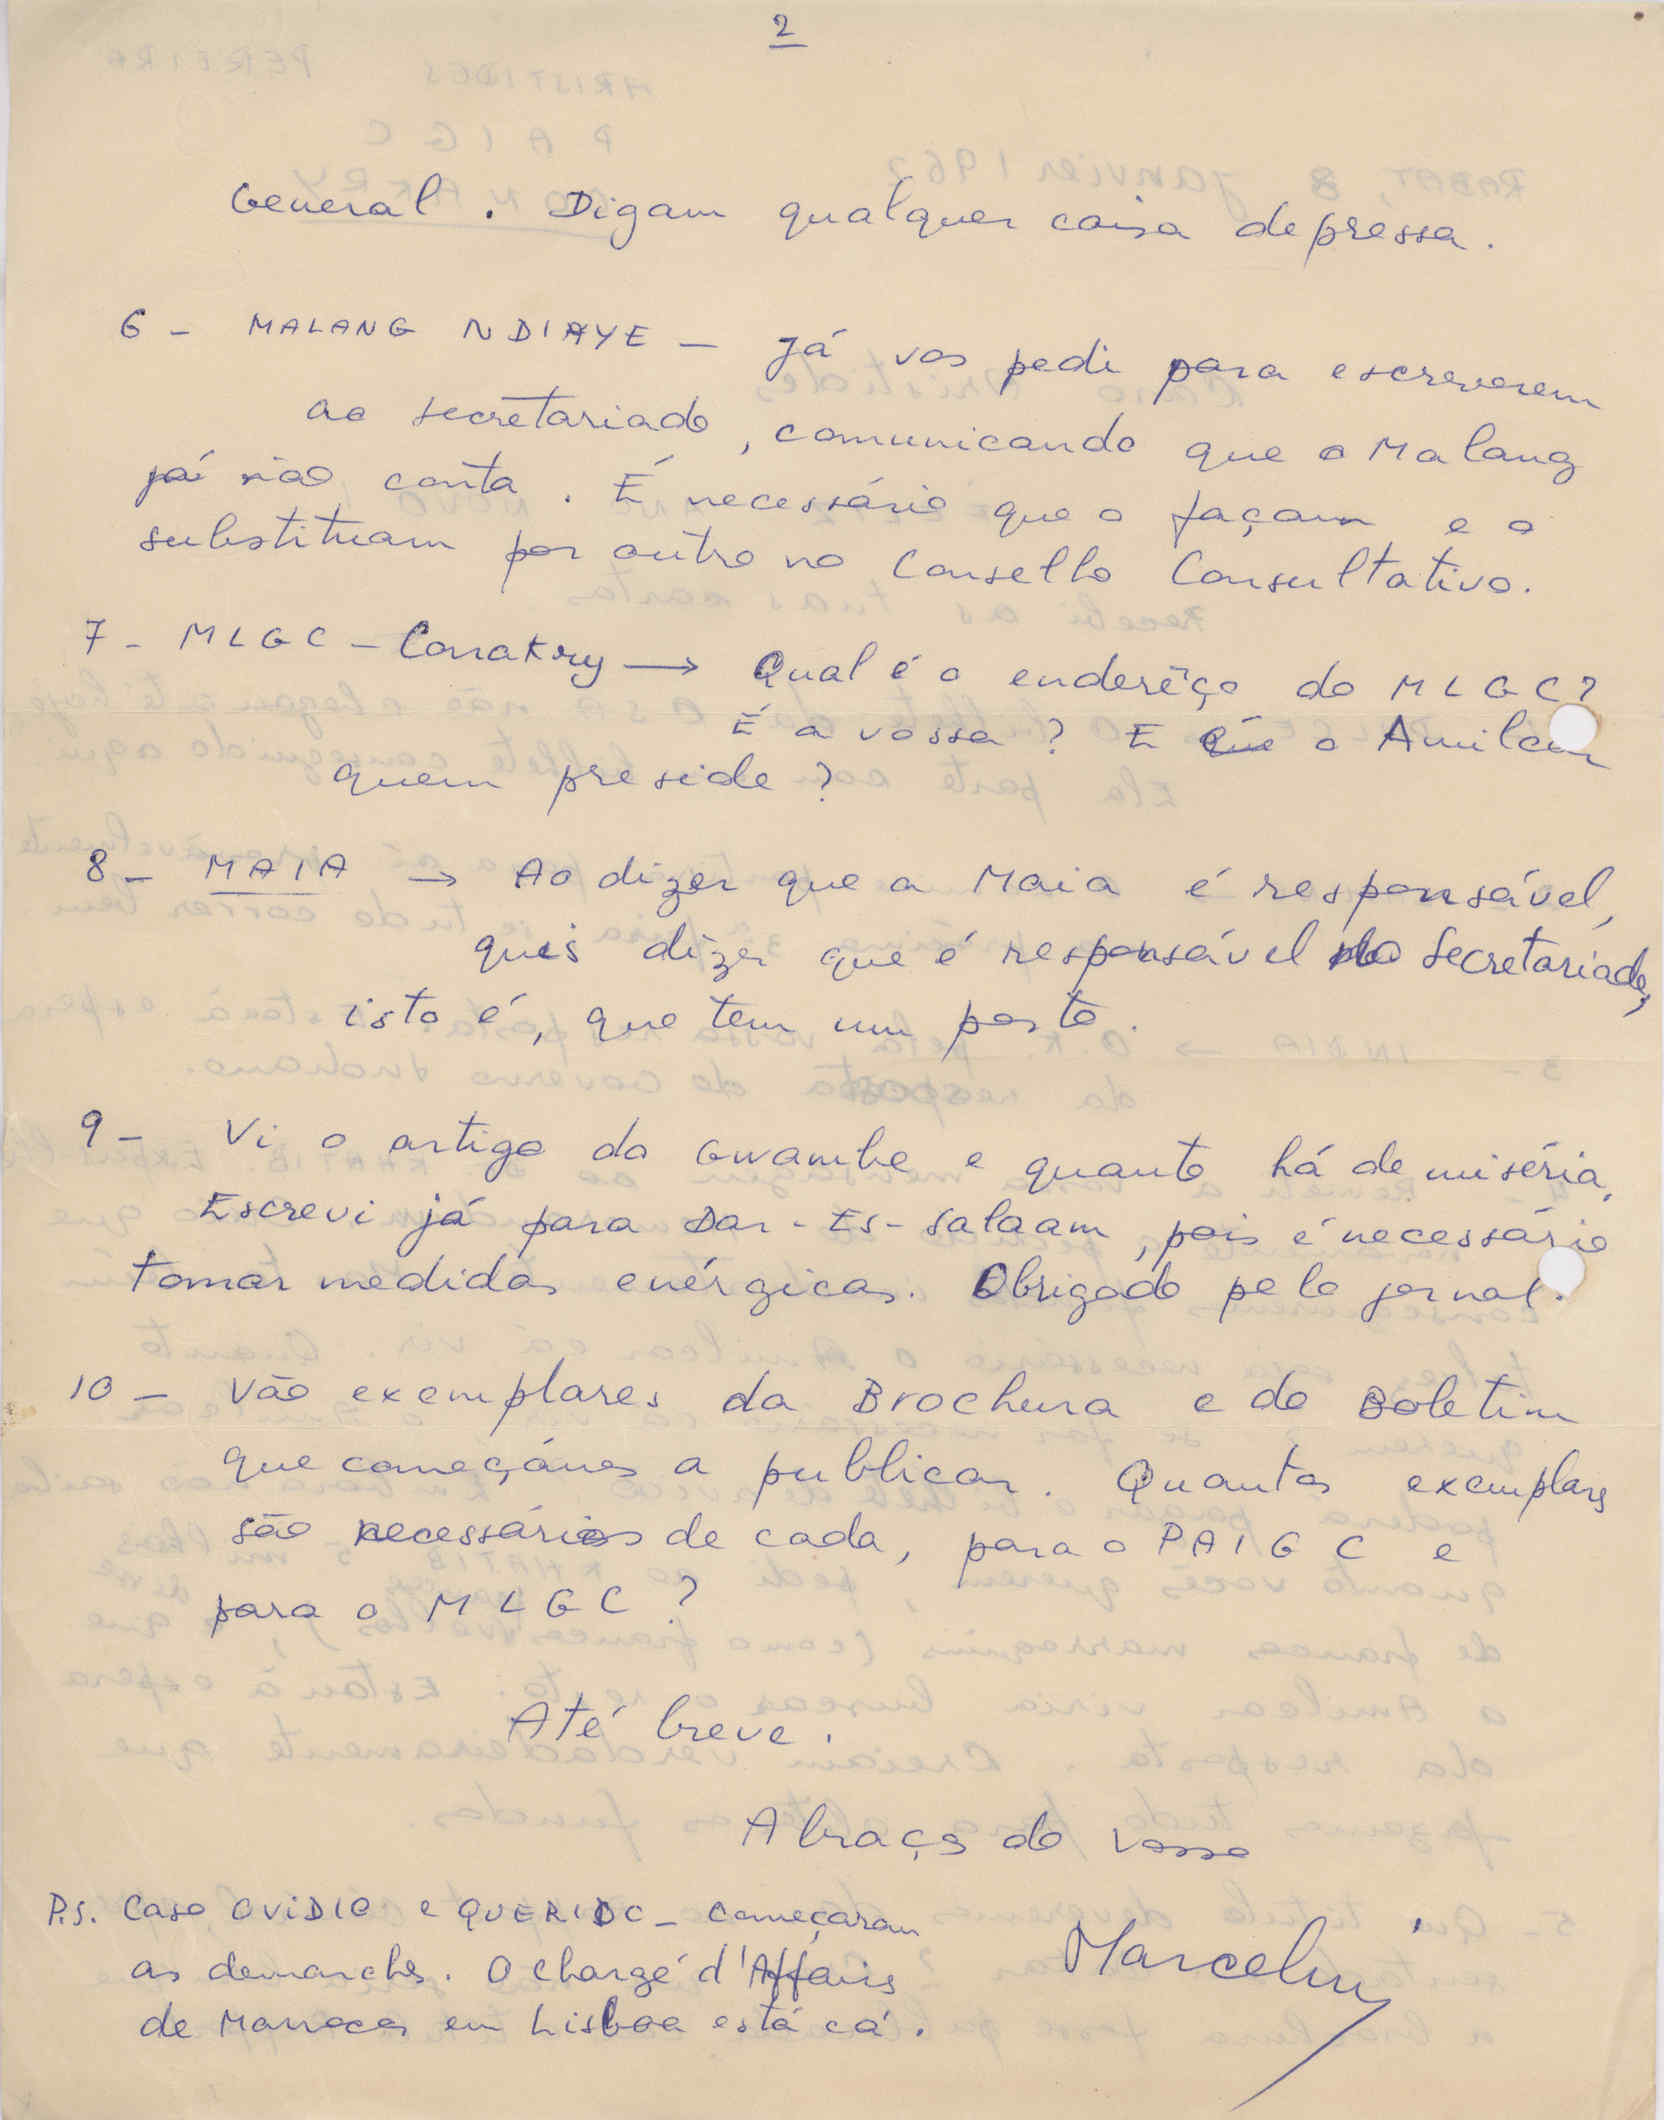 2
General. Digam qualquer coisa depressa.
6 - MALANG NDIAYE - Já vos pedi para escreverem
ao secretariado, comunicando que o Malang
já não conta. É necessário que o façam e o
substituam por outro no Conselho Consultativo.
7 - MLGC - Conakry → Qual é o enderêço do MLGC?
É a vossa? E é o Amilcar
quem preside?
8 - MAIA → Ao dizer que a Maia é responsável,
quis dizer que é responsável do Secretariado,
isto é, que tem um posto.
9 - Vi o artigo do Gwambe e quanto há de miséria.
Escrevi já para Dar-Es-Salaam, pois é necessário
tomar medidas enérgicas. Obrigado pelo jornal.
10 - Vão exemplares da Brochura e do Boletim
que começámos a publicar. Quantos exemplares
são necessários de cada, para o PAIGC e
para o MLGC?
Até breve.
Abraços do vosso
P.S. Caso OVIDIO e QUERIDO - Começaram
as demarches. O Chargé d'Affaires
de Marrocos em Lisboa está cá.
Marcelino